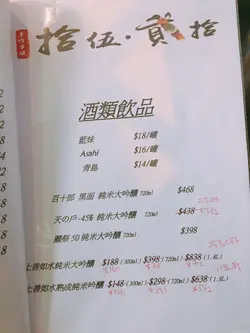 手作串燒
拾伍·貳拾
酒類飲品
藍妹 $18/罐
Asahi $16/罐
青島 $14/罐
百十郎 黑面 純米大吟釀 720ml $468
天の戶·45% 純米大吟釀 720ml $438
獺祭50 純米大吟釀 720ml $398
上善如水純米大吟釀 $188 (300ml) $398 (720ml) $838 (1.8L)
上善如水熟成純米吟釀 $148 (300ml) $298 (720ml) $638 (1.8L)